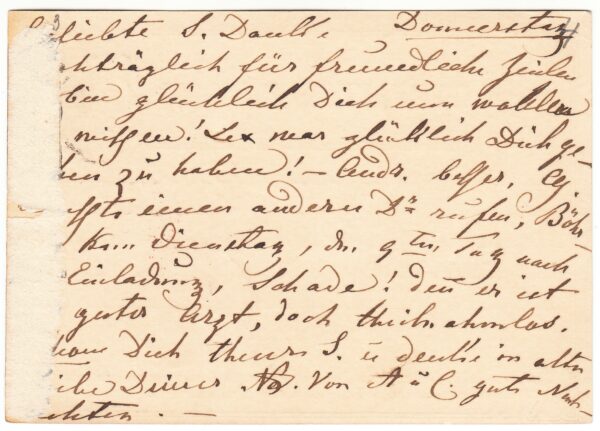 liebte S. Danke Donnerstag
nachträglich für freundliche Zeilen
bin glücklich Dich nun wohler
wissen! Lex war glücklich Dich ge-
zu haben! – Andr. besser, Cg
einen andern Dr rufen, Böh-
kam Dienstag, den 9ten Tag nach
Einladung, Schade! denn er ist
guter Arzt, doch theilnahmlos.
Dich theure S. u denke in alter
Liebe Deiner. Von A u C. gute Nach-
richten. –